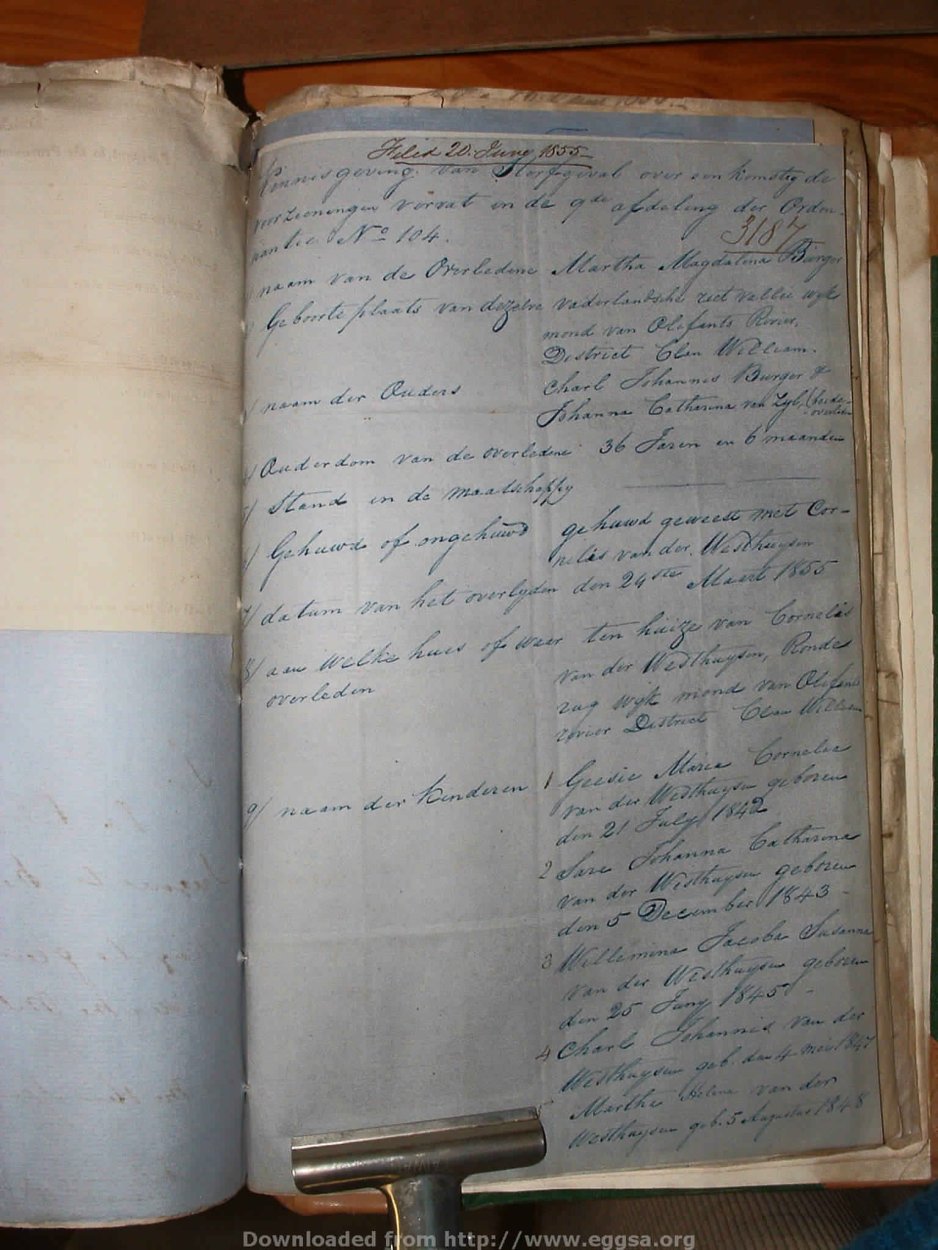 Filed 20 Juny 1855
Kennisgeving van Sterfgeval over een komstig de
voorzieningen vorvat in de 9de afdeling der Ordon-
nantie No 104.
3187
naam van de Overledene Martha Magdalena Burger
Geboorte plaats van dezelve vaderlandsche riet vallei wyk
mond van Olifants Rivier,
District Clan William.
naam der Ouders Charl Johannes Burger &
Johanna Catharina van Zyl, (beide
overleden
Ouderdom van de overledene 36 Jaren en 6 maanden
5/ Stand in de maatschappy
6/ Gehuwd of ongehuwd gehuwd geweest met Cor-
nelis van der Westhuysen
7/ datum van het overlyden den 24ste Maart 1855
8/ aan welke huis of waar ten huize van Cornelis
overleden van der Westhuysen, Ronde
rug wyk mond van Olifant
rivier District Clan William
9/ naam der Kinderen 1 Geesie Maria Cornelia
van der Westhuysen geboren
den 21 July 1842
2 Sara Johanna Catharina
van der Westhuysen geboren
den 5 December 1843
3 Willemina Jacoba Susanna
van der Westhuysen geboren
den 25 Juny 1845
4 Charl Johannis van der
Westhuysen geb. den 4 mei 1847
Martha Helena van der
Westhuysen geb. 5 Augustus 1848
Downloaded from http://www.eggsa.org